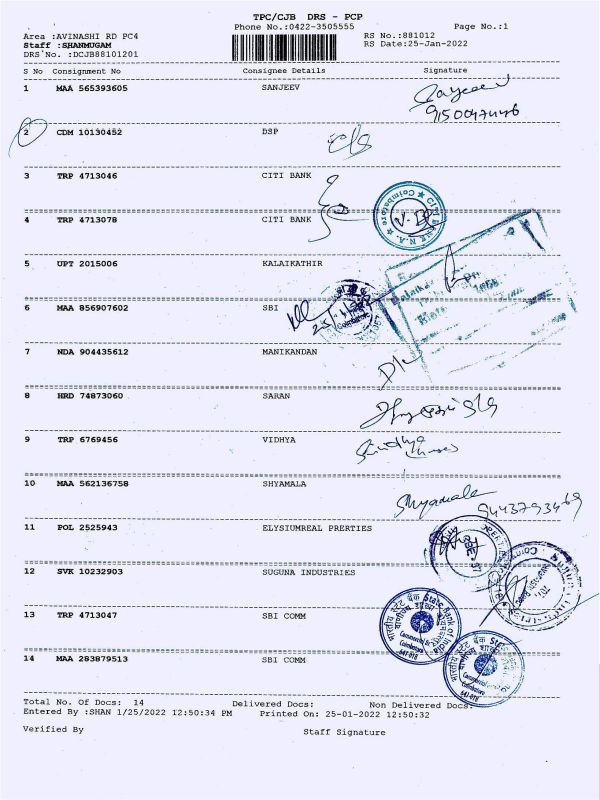 TPC/CJB DRS - PCP
Phone No.:0422-3505555 Page No.:1
Area :AVINASHI RD PC4 RS No.:881012
Staff :SHANMUGAM RS Date:25-Jan-2022
DRS No. :DCJB88101201
S No Consignment No Consignee Details Signature
1 MAA 565393605 SANJEEV
2 CDM 10130452 DSP
3 TRP 4713046 CITI BANK
4 TRP 4713078 CITI BANK
CITI BANK N.A. Coimbatore
5 UPT 2015006 KALAIKATHIR
6 MAA 856907602 SBI
Coimbatore
7 NDA 904435612 MANIKANDAN
8 HRD 74873060 SARAN
9 TRP 6769456 VIDHYA
10 MAA 562136758 SHYAMALA
Shyamala
9443793469
11 POL 2525943 ELYSIUMREAL PRERTIES
12 SVK 10232903 SUGUNA INDUSTRIES
13 TRP 4713047 SBI COMM
भारतीय स्टेट बैंक State Bank of India
14 MAA 283879513 SBI COMM
भारतीय स्टेट बैंक State Bank
Total No. Of Docs: 14 Delivered Docs: Non Delivered Docs:
Entered By :SHAN 1/25/2022 12:50:34 PM Printed On: 25-01-2022 12:50:32
Verified By Staff Signature